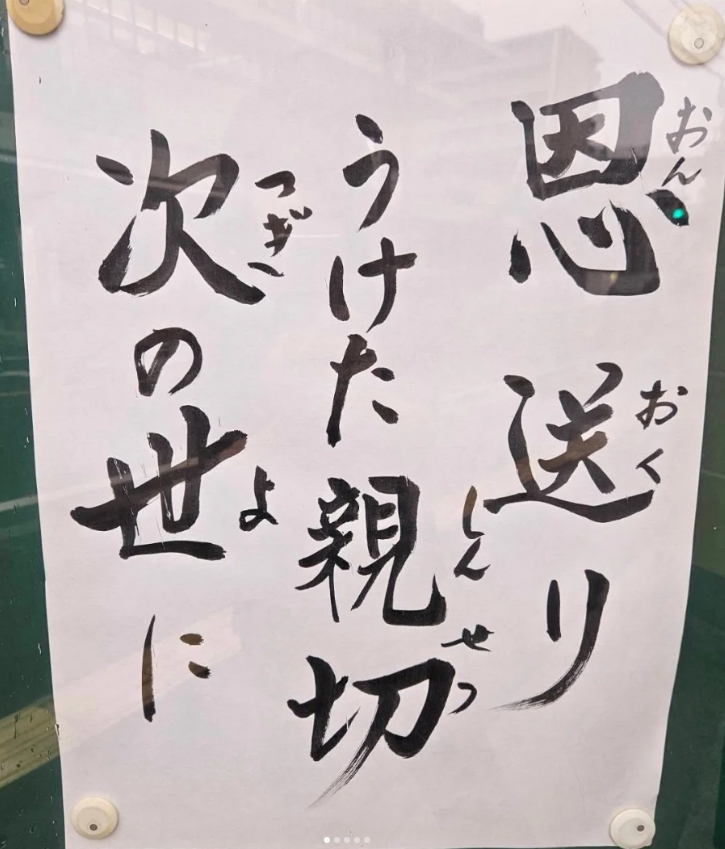 恩送り
おん
おく
うけた親切
しんせつ
次の世に
つぎ
よ